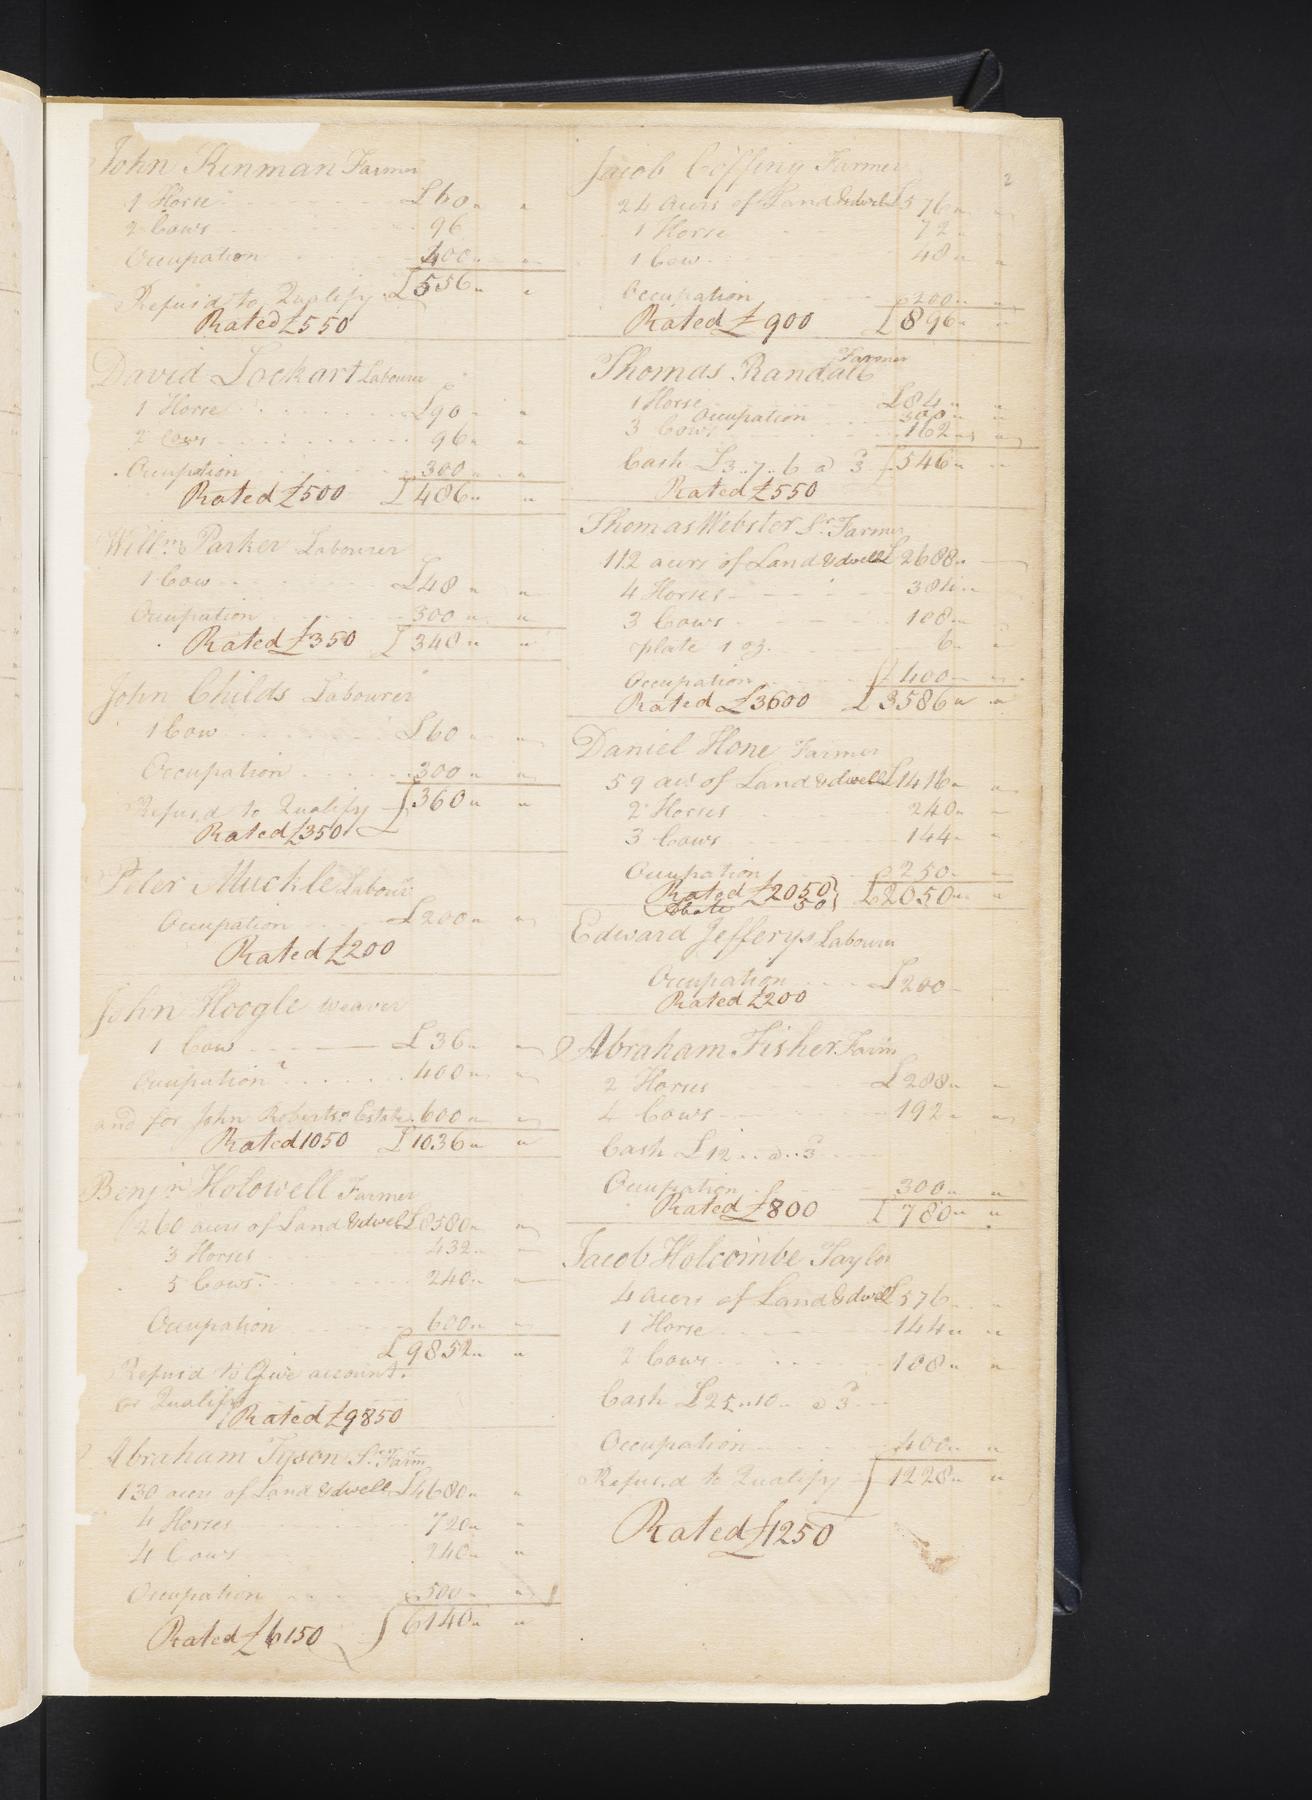 John Kinman Farmer
1 Horse £60 " "
2 Cows 96
Occupation 400 " "
£556 " "
Refusd to Qualify
Rated £550
David Lockart Labourer
1 Horse £90 " "
2 Cows 96 " "
Occupation 300 " "
Rated £500 £486 " "
Willm Parker Labourer
1 Cow £48 " "
Occupation 300 " "
Rated £350 £348 " "
John Childs Labourer
1 Cow £60 " "
Occupation 300 " "
Refusd to Qualify £360 " "
Rated £350
Peter Muckle Labour
Occupation £200 " "
Rated £200
John Hoogle weaver
1 Cow £36 " "
Occupation 400 " "
and for John Robertsn Estate 600 " "
Rated 1050 £1036 " "
Benjn Holowell Farmer
260 acers of Land & dwel £8580 " "
3 Horses 432 "
5 Cows 240 "
Occupation 600 " "
£9852 " "
Refusd to Give account
or Qualify
Rated £9850
Abraham Tyson Sr Farm
130 acers of Land & dwell £4680 " "
4 Horses 720 " "
4 Cows 240 " "
Occupation 500 " "
Rated £6150 6140 " "
2
Jacob Coffing Farmer
24 acers of Land & dwel £576 "
1 Horse 72
1 Cow 48 " "
Occupation 200 " "
Rated £900 £896 "
Thomas Randall Farmer
1 Horse £84 " "
Occupation 300 " "
3 Cows 162 " "
Cash £3 " 7 " 6 a 3 £546 " "
Rated £550
Thomas Webster Sr Farmer
112 acers of Land & dwell £2688 "
4 Horses 384 "
3 Cows 108 "
plate 1 oz. 6 "
Occupation 400 " "
Rated £3600 £3586 " "
Daniel Hone Farmer
59 acrs of Land & dwell £1416 "
2 Horses 240 "
3 Cows 144 "
Occupation 250 "
Rated £2050 £2050 " "
abate 50
Edward Jefferys Labourer
Occupation £200
Rated £200
Abraham Fisher Farm
2 Horses £288 "
4 Cows 192 "
Cash £12 " a " 3
Occupation 300 " "
Rated £800 £780 " "
Jacob Holcombe Taylor
4 acers of Land & dwell £576
1 Horse 144 " "
2 Cows 108 " "
Cash £25 " 10 " a 3
Occupation 400 " "
Refusd to Qualify 1228 " "
Rated £1250